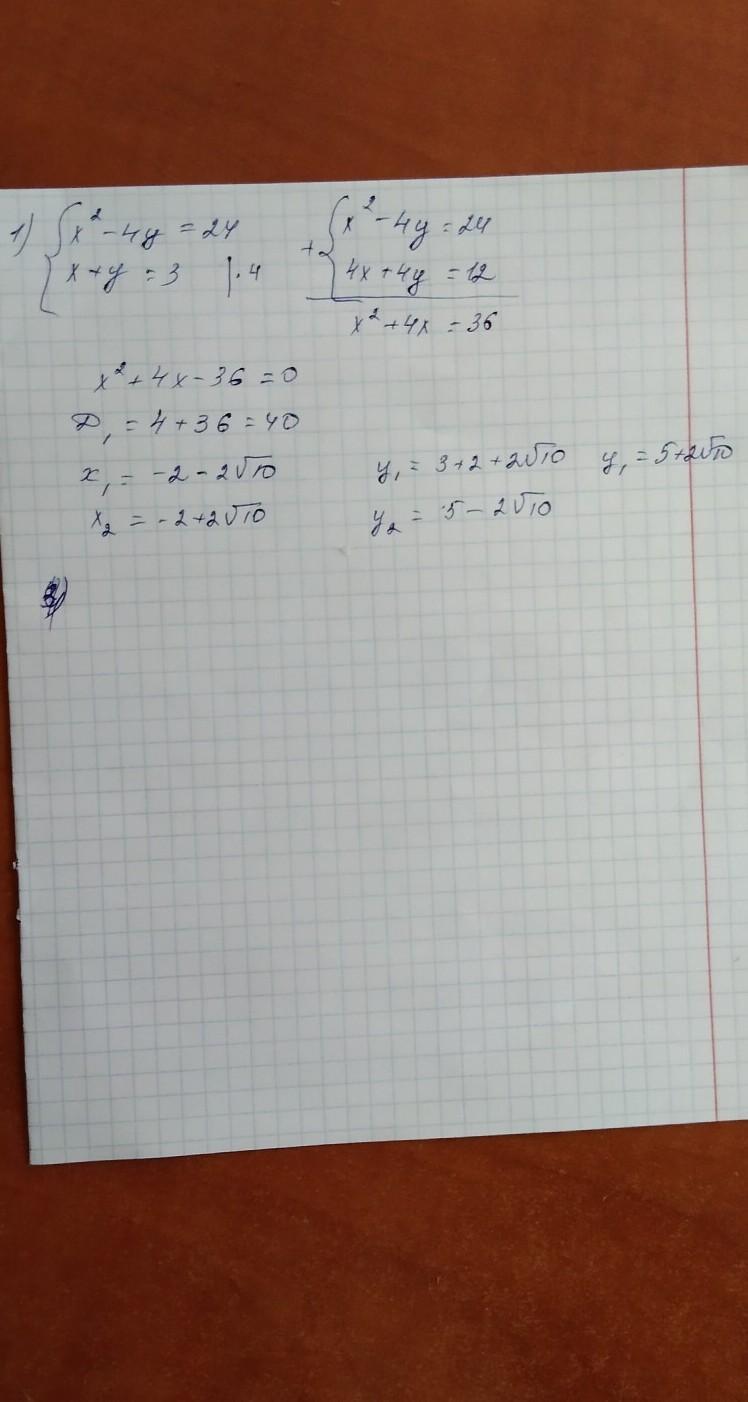 1) { x² - 4y = 24
x + y = 3 | · 4
+ { x² - 4y = 24
4x + 4y = 12
x² + 4x = 36
x² + 4x - 36 = 0
D₁ = 4 + 36 = 40
x₁ = -2 - 2√10
x₂ = -2 + 2√10
y₁ = 3 + 2 + 2√10 y₁ = 5 + 2√10
y₂ = 5 - 2√10